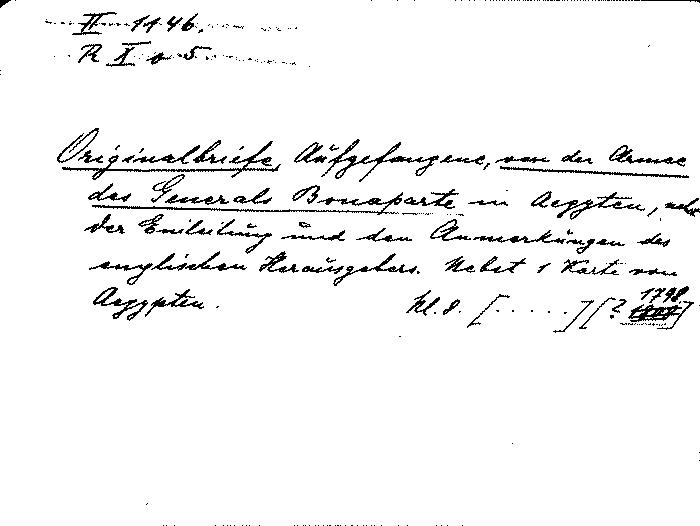 II 1146.
R X o 5
Originalbriefe, Aufgefangene, von der Armee
des Generals Bonaparte in Aegypten, nebst
der Einleitung und den Anmerkungen des
englischen Herausgebers. Nebst 1 Karte von
Aegypten. Kl. 8. [.....] [? 1798]